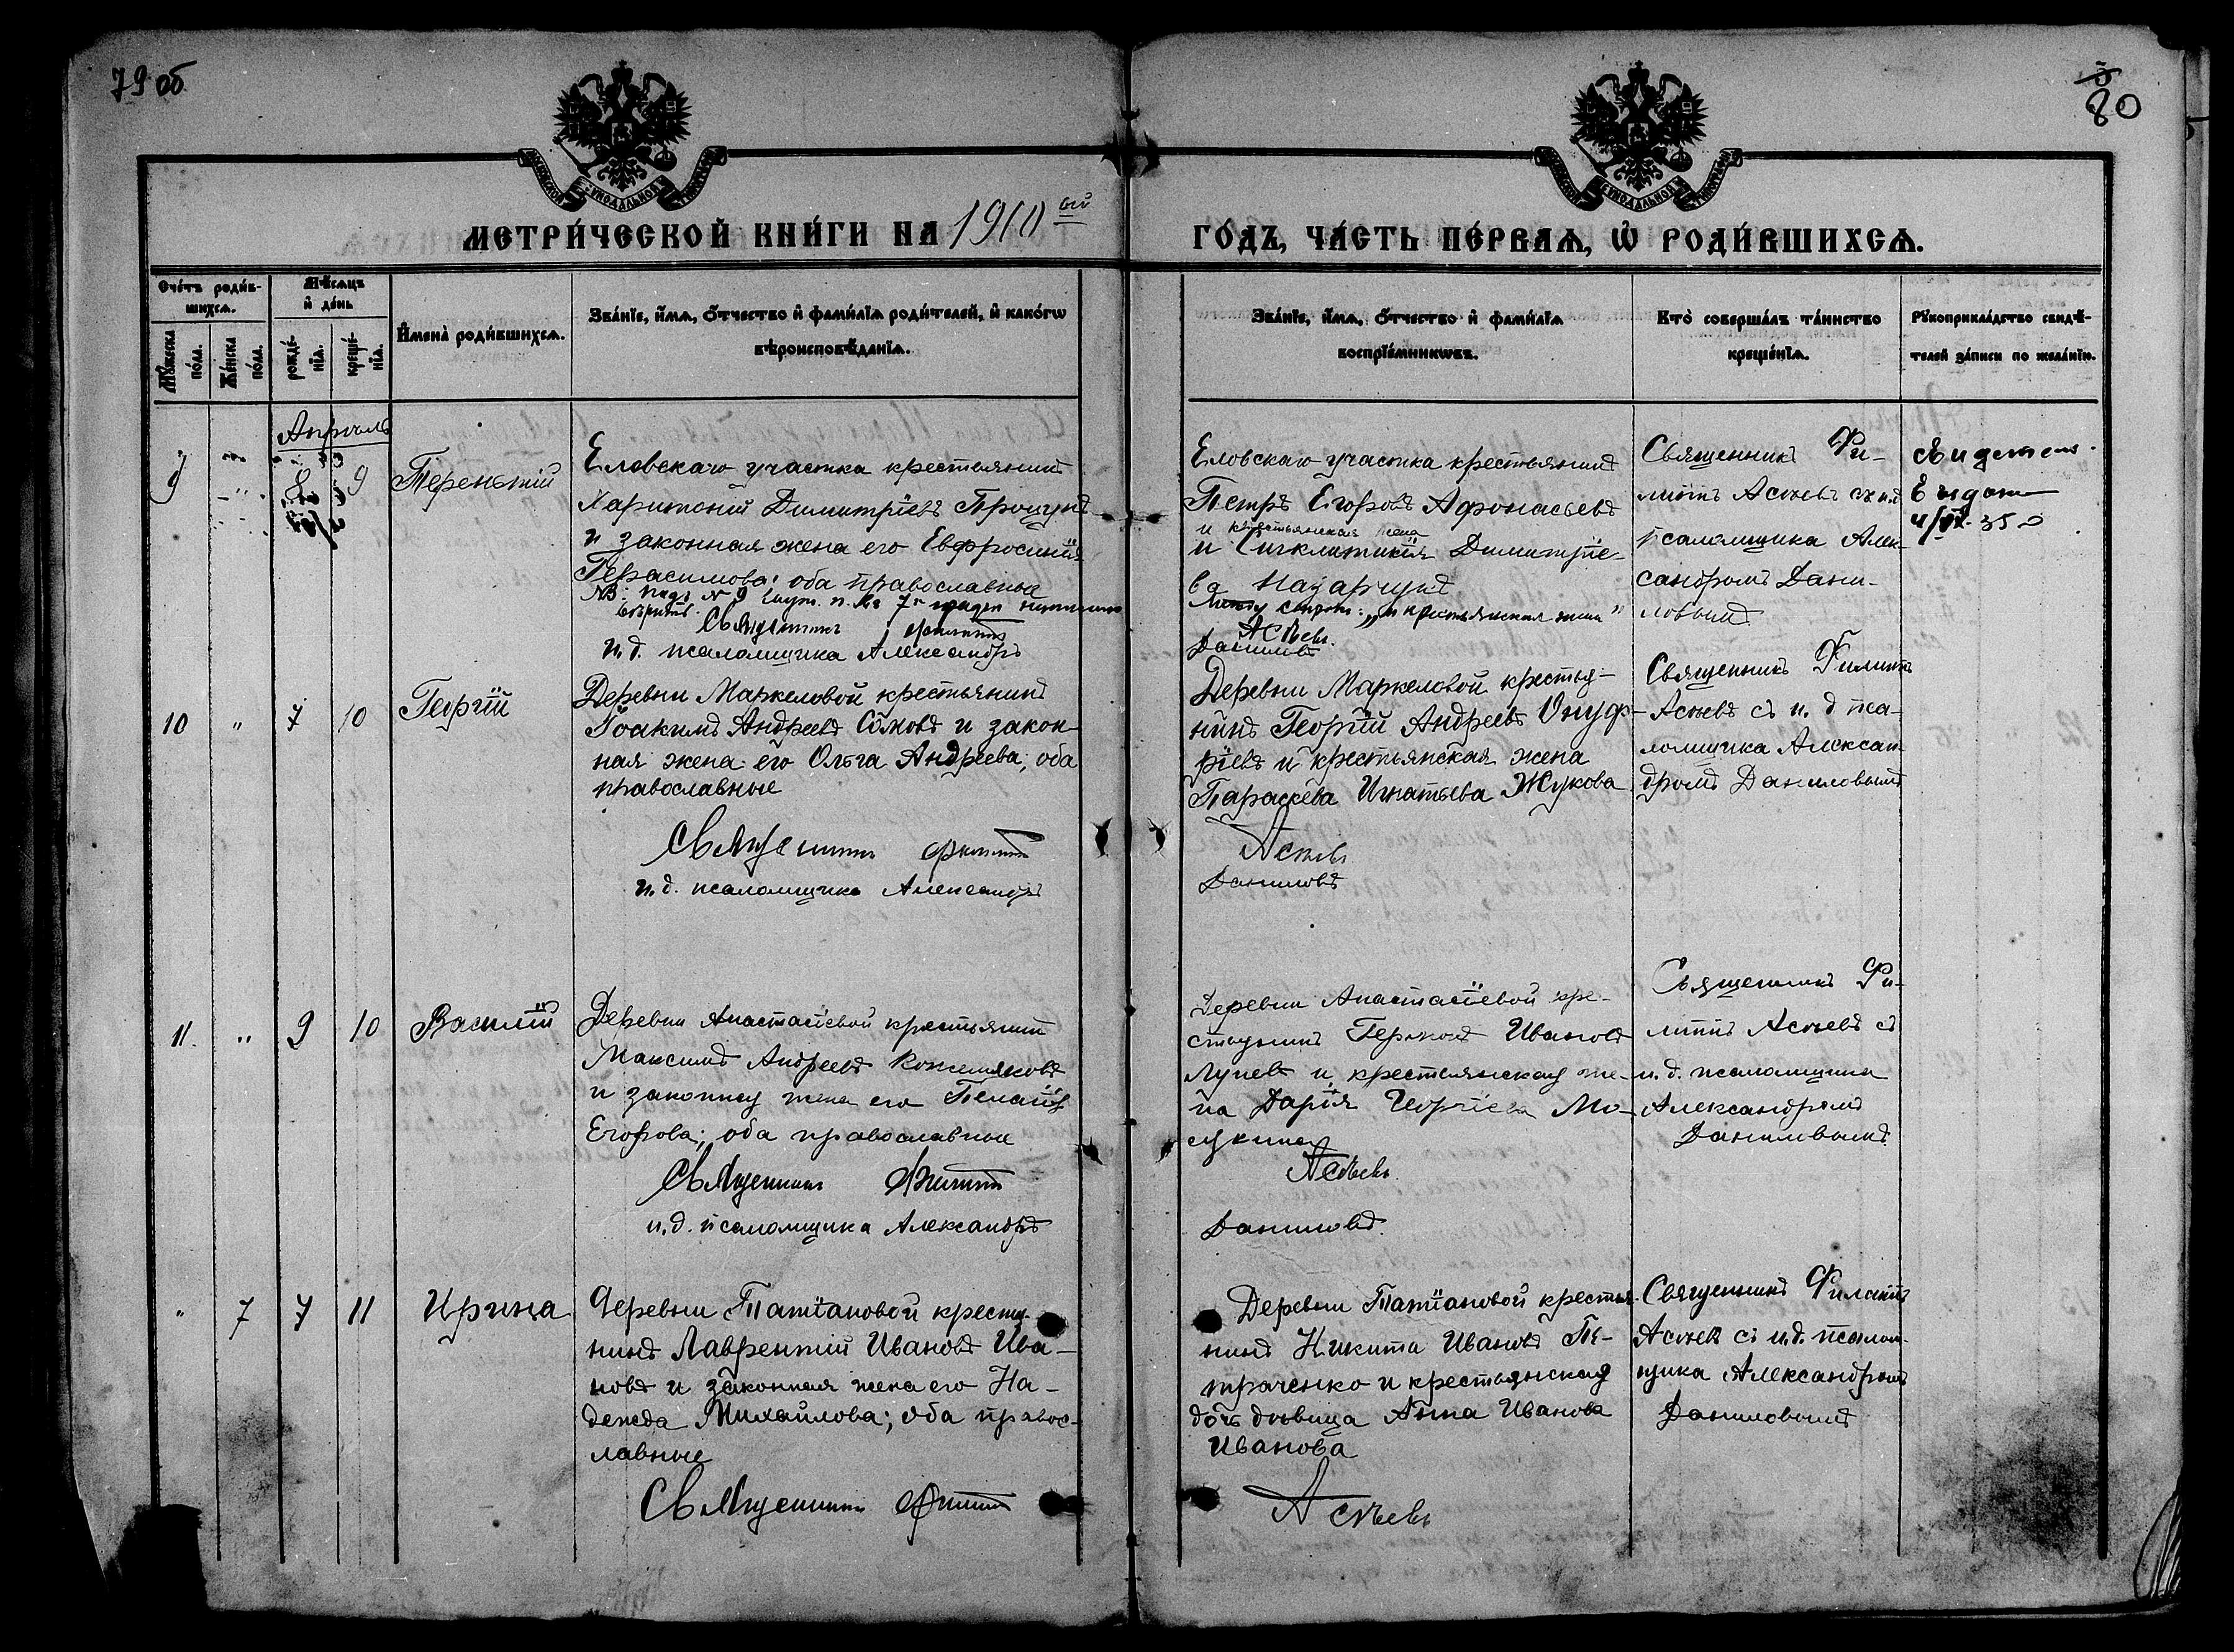 79 об
80
МЕТРИ́ЧЕСКОЙ КНИ́ГИ НА 1910 ый
ГО́ДЪ, ЧА́СТЬ ПЕ́РВАѦ, Ѡ҆ РОДИ́ВШИХСѦ.
Сче́тъ роди́в-
шихсѧ.
Мꙋ́жеска по́ла.
Же́нска по́ла.
Мѣ́сѧцъ
и҆ де́нь
рожде́-
нїѧ.
креще́-
нїѧ.
И҆мена̀ роди́вшихсѧ.
Зва́нїе, и҆́мѧ, ѻ҆́тчество и҆ фами́лїѧ роди́телей, и҆ како́гѡ
вѣроисповѣ́данїѧ.
Зва́нїе, и҆́мѧ, ѻ҆́тчество и҆ фами́лїѧ
воспрїе́мникѡвъ.
Кто̀ соверша́лъ та́инство
креще́нїѧ.
Рꙋкоприкла́дство свидѣ́-
телей за́писи по жела́нїю.
Апрѣль
9 " 8 9 Терентій
Еловскаго участка крестьянинъ
Харитоній Димитріевъ Прощунъ
и законная жена его Евфросинія
Герасимова; оба православные
Священникъ Филиппъ
и.д. псаломщика Александръ
Еловскаго участка крестьянинъ
Петръ Егоровъ Афонасьевъ
и крестьянская жена
и Синклитикія Димитріе-
ва Назарчукъ
"и крестьянская жена"
Асѣевъ.
Даниловъ
Священникъ Фи-
липпъ Асѣевъ съ и.д.
псаломщика Алек-
сандромъ Дани-
ловымъ
10 " 7 10 Георгій
Деревни Маркеловой крестьянинъ
Іоакимъ Андреевъ Сомовъ и закон-
ная жена его Ольга Андреева; оба
православные
Священникъ Филиппъ
и.д. псаломщика Александръ
Деревни Маркеловой крестья-
нинъ Георгій Андреевъ Онуф-
ріевъ и крестьянская жена
Параскева Игнатьева Жукова
Асѣевъ
Даниловъ
Священникъ Филиппъ
Асѣевъ съ и. д пса-
ломщика Алексан
дромъ Даниловымъ
11. " 9 10 Василій
Деревни Анастасіевой крестьянинъ
Максимъ Андреевъ Кожемяковъ
и законная жена его Пелагія
Егорова; оба православные
Священникъ Филиппъ
и.д. псаломщика Александръ
Деревни Анастасіевой кре-
стьянинъ Иванов
и крестьянская же-
на Дарія Георгіева
Асѣевъ.
Даниловъ.
Священникъ Фи-
липпъ Асѣевъ съ
и.д. псаломщика
Александромъ
Даниловымъ.
" 7 7 11 Ирина
Деревни Татіановой крестья-
нинъ Лаврентій Ивановъ Ива-
новъ и законная жена его На-
дежда Михайлова; оба правос-
лавные
Священникъ Филиппъ
Деревни Татіановой крестья-
нинъ Никита Ивановъ Пе-
траченко и крестьянская
дочь дѣвица Анна Иванова
Иванова
Асѣевъ
Священникъ Филиппъ
Асѣевъ съ и.д. псалом-
щика Александромъ
Даниловымъ